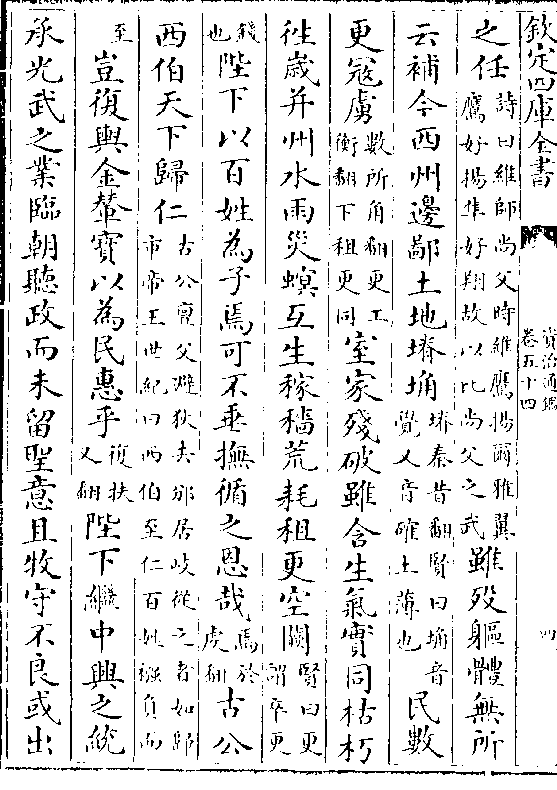 欽定四庫全書
資治通鑑
卷五十四
四
之任詩曰維師尚父時維鷹揚爾雅翼鷹好揚隼好翔故以比尚父之武雖殁軀體無所
云補今西州邊鄙土地塉埆塉秦昔翻賢曰埆音覺又音確土薄也民數
更寇虜數所角翻更工衡翻下租更同室家殘破雖含生氣實同枯朽
徃歲并州水雨災螟互生稼穡荒耗租更空闕賢曰更謂卒更
錢也陛下以百姓為子焉可不垂撫循之恩哉焉於䖍翻古公
西伯天下歸仁古公亶父避狄去邠居岐從之者如歸市帝王世紀曰西伯至仁百姓襁負而
至豈復輿金輦寶以為民惠乎復扶又翻陛下繼中興之統
承光武之業臨朝聽政而未留聖意且牧守不良或出